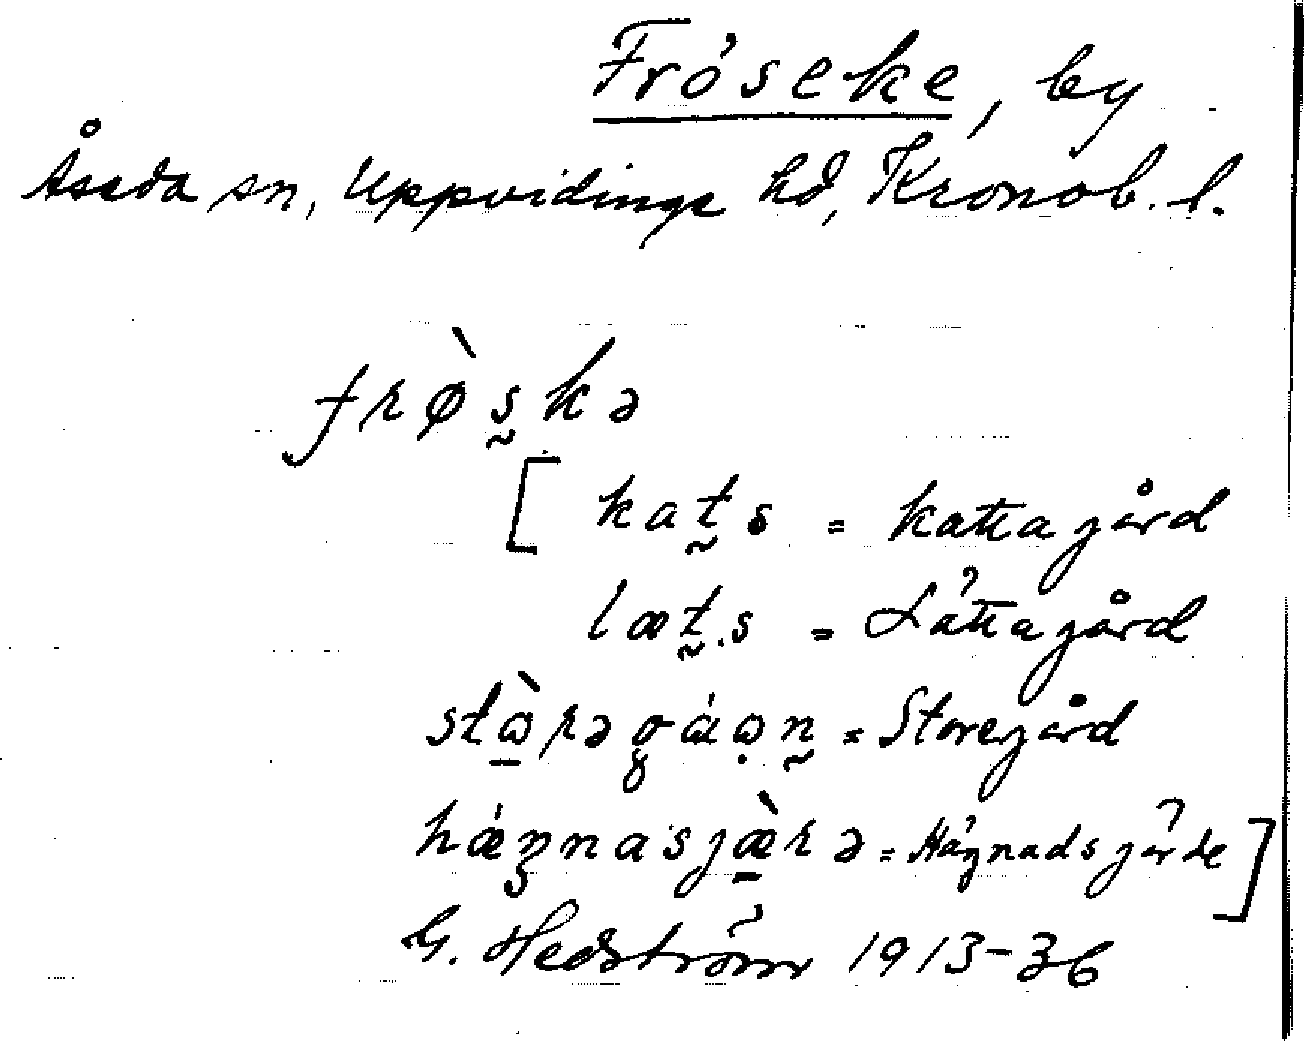 Fröseke, by
Åseda sn, Uppvidinge hd, Kronob. l.
frø̀s̰kə
[ kat̰s = Kattagård
læt̰.s = Lättagård
stɷ̠̀rəgáɷ̣n̰ = Storegård
hǽŋnasjæ̠̀rə = Hägnadsgärde ]
G. Hedström 1913-36